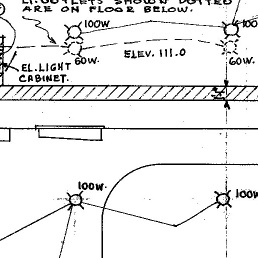 LT. OUTLETS SHOWN DOTTED
ARE ON FLOOR BELOW.
100W 100
ELEV. 111.0
60W. 60W.
EL. LIGHT
CABINET.
100W. 100W